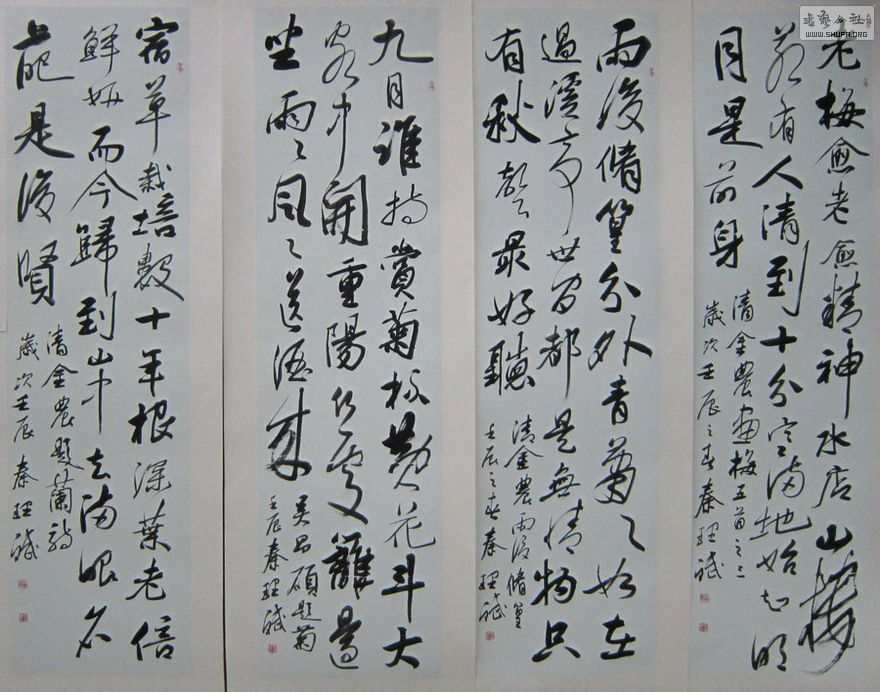 老梅愈老愈精神水店山樓
若有人清到十分寒滿地始知明
月是前身
清金農畫梅五首之二
歲次壬辰之春秦理斌
雨後脩篁分外青蕭々如在
過溪亭世間都是無情物只
有秋聲最好聽
清金農雨後脩篁
壬辰之春秦理斌
九月誰持賞菊杯黃花斗大
客中開重陽何處籬邊
坐雨々風々送酒來
吳昌碩題菊
壬辰秦理斌
宿草栽培數十年根深葉老倍
鮮妍而今歸到山中去滿眼名
葩是後賢
清金農題蘭詩
歲次壬辰秦理斌
書藝公社
WWW.SHUFA.ORG